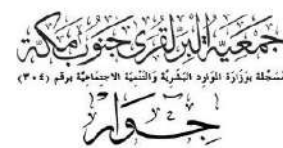 جمعية البر لقرى جنوب مكة
مسجلة بوزارة الموارد البشرية والتنمية الاجتماعية برقم (٣٠٤)
جوار